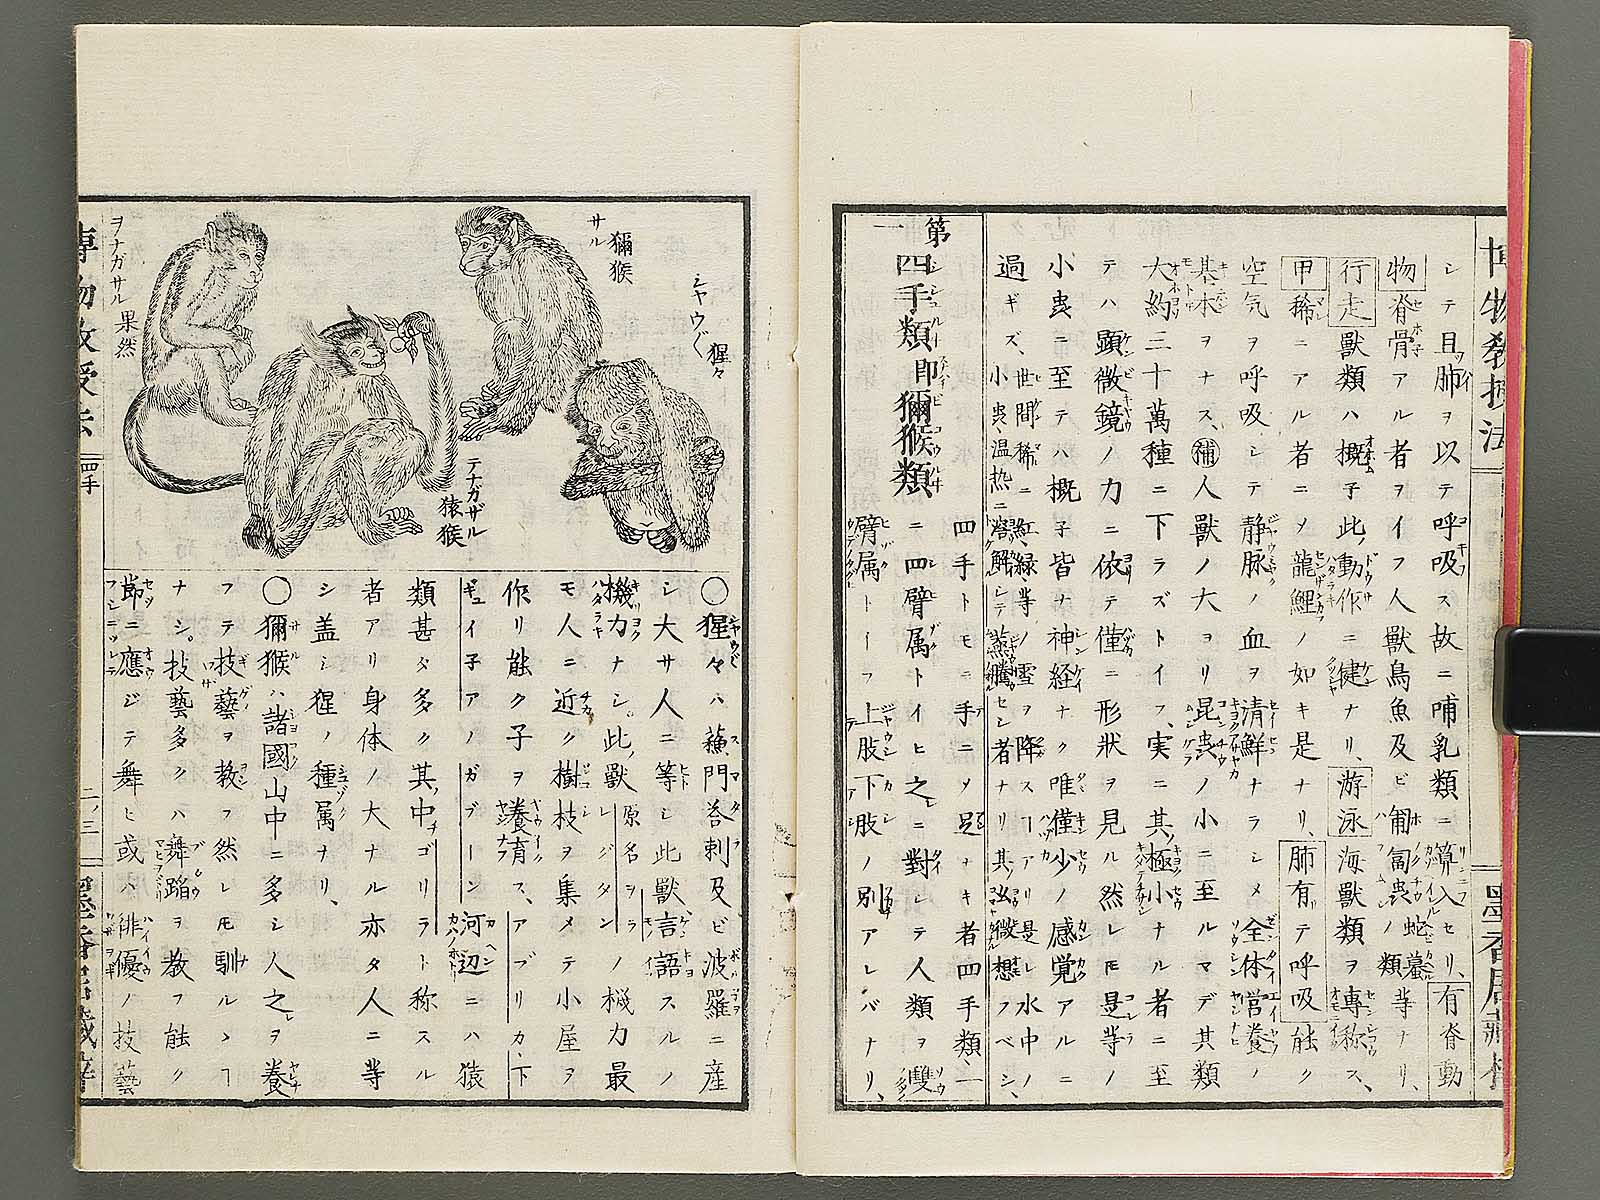 シテ且肺ヲ以テ呼吸ス故ニ哺乳類ニ算入セリ、有脊動
物脊骨アル者ヲイフ人獣鳥魚及ビ匍匐虫蛇蟇ノ類等ナリ、
行走獣類ハ概子此動作ニ健ナリ、游泳海獣類ヲ專称ス、
甲稀ニアル者ニメ龍鯉ノ如キ是ナリ、肺有テ呼吸能ク
空気ヲ呼吸シテ静脉ノ血ヲ清鮮ナラシメ全体営養ノ
基本ヲナス、補人獣ノ大ヨリ昆虫ノ小ニ至ルマデ其類
大約三十萬種ニ下ラズトイフ、実ニ其極小ナル者ニ至
テハ顕微鏡ノ力ニ依テ僅ニ形状ヲ見ル然レ𪜈是等ノ
小虫ニ至テハ概子皆ナ神経ナク唯僅少ノ感覚アルニ
過ギズ、小虫温热ニ溶解シテ蒸騰セシ者ナリ其強微想フベシ、
世間稀ニ紅緑等ノ雪ヲ降スーアリ是レ水中ノ
第一
四手類即獼猴類
四手トモニ手ニメ足ナキ者四手類一
ニ四臂属トイヒ之ニ對シテ人類ヲ雙
臂属トーフ上肢下肢ノ別アレバナリ、
博物教授法
墨香居蔵梓
獼猴
サル
シヤウ〴〵
猩々
テナガザル
猿猴
ヲナガサル
果然
〇猩々ハ蘓門荅剌及ビ波羅ニ産
シ大サ人ニ等シ此獣言語スルノ
機力ナシ。此獣原名ヲラレグタンノ機力最
モ人ニ近ク樹枝ヲ集メテ小屋ヲ
作リ能ク子ヲ養育ス、アブリカ、下
ギユイ子アノガブーン河辺ニハ猿
類甚タ多ク其中ゴリラト称スル
者アリ身体ノ大ナル亦タ人ニ等
シ盖シ猩ノ種属ナリ、
〇獼猴ハ諸國山中ニ多シ人之ヲ養
フテ技藝ヲ教フ然レ𪜈馴ルヽヿ
ナシ。技藝多クハ舞蹈ヲ教フ能ク
節ニ應ジテ舞ヒ或ハ俳優ノ技藝
博物教授法
四手
二ノ三
墨香居蔵梓